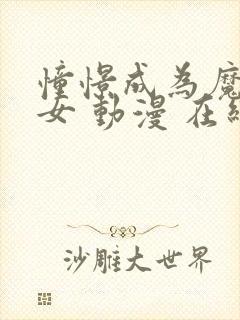 憧憬成為魔
女動漫在線
沙雕大世界